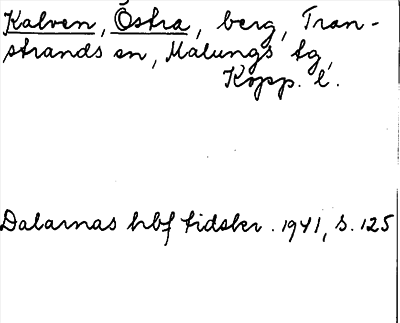 Kalven, Östra, berg, Tran-
strands sn, Malungs tg,
Kopp. l.
Dalarnas hbf tidskr. 1941, s. 125